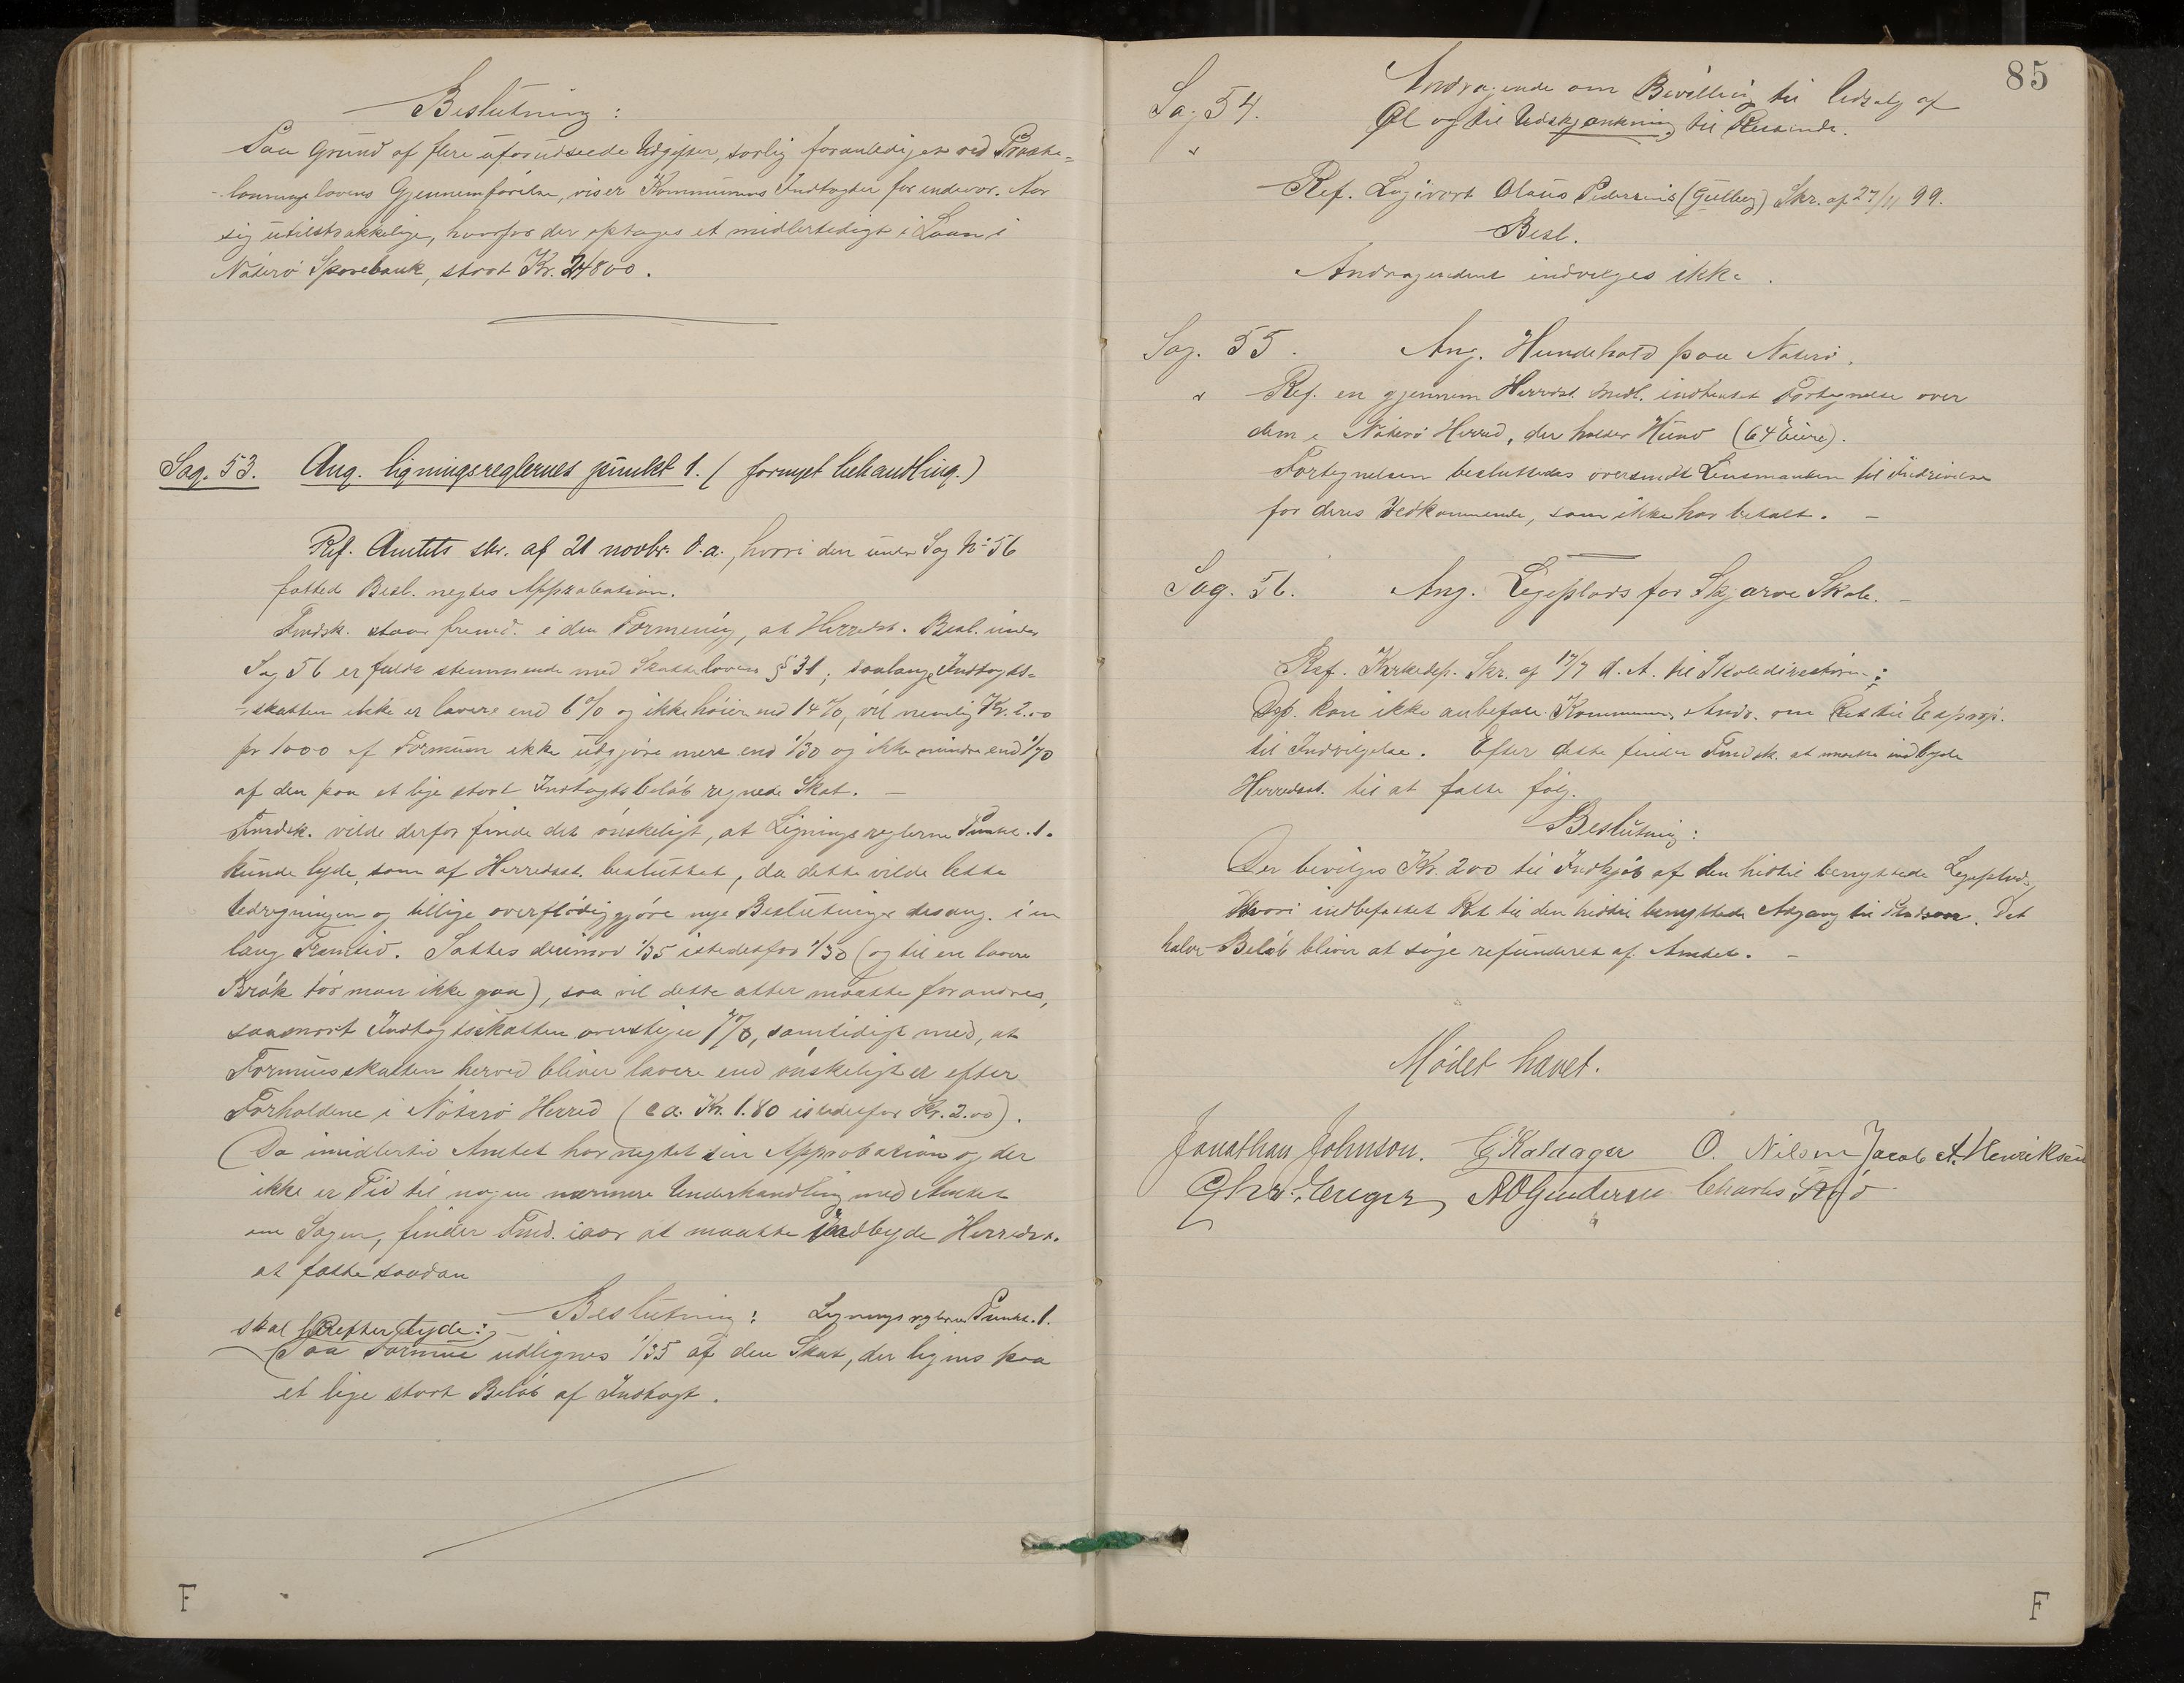 Beslutning:
Paa Grund af flere uforudseede Udgifter, særlig foranlediget ved Præste=
-lønningslovens Gjennemførelse, viser Kommunens Indtægter for indevær. Aar
sig utilstrækkelige, hvorfor der optages et midlertidigt Laan i
Nøterø Sparebank, stort Kr. 4800.
Sag. 53. Ang. ligningsreglernes punkt 1. (fornyet behandling.)
Ref. Amtets skr. af 21 novbr. d.a., hvori den under Sag No 56
fatted Besl. negtes Approbation.
Fmdsk. staar fremd. i den Formening, at Herredst. Besl. under
Sag 56 er fuldt stemmende med Skattelovens § 31; saalænge Indtægts-
-skatten ikke er lavere end 6 % og ikke høier end 14 %, vil nemlig Kr. 2.00
pr 1000 af Formuen ikke udgjøre mere end 1/30 og ikke mindre end 1/70
af den paa et lige stort Indtægtsbeløb regnede Skat. —
Fmdsk. vilde derfor finde det ønskeligt, at Ligningsreglerne Punkt. 1.
kunde lyde, som af Herredsst. besluttet, da dette vilde lette
Udregningen og tillige overflødiggjøre nye Beslutninger desang. i en
lang Fremtid. Sættes derimod 1/35 istedetfor 1/30 (og til en lavere
Brøk tør man ikke gaa), saa vil dette atter maatte forandres,
saasnart Indtægtsskatten overstiger 7 %, samtidigt med, at
Formuesskatten herved bliver lavere end ønskeligt er efter
Forholdene i Nøterø Herred (ca. Kr. 1.80 istedetfor Kr. 2.00).
Da imidlertid Amtet har negtet sin Approbation og der
ikke er Tid til nogen nærmere Underhandling med Amtet
om Sagen, finder Fmd. iaar at maatte indbyde Herredsst.
at fatte saadan
Beslutning: Ligningsreglernes Punkt. 1.
skal herefter lyde:
Paa Formue udlignes 1/35 af den Skat, der lignes paa
et lige stort Beløb af Indtægt.
F
85
Sag 54. Andragende om Bevilling til Udsalg af
Øl og til Udskjænkning til Reisende.
Ref. Logivert Olaus Pedersens (Gulberg) Skr. af 27/11 99.
Besl.
Andragendet indvilges ikke.
Sag. 55. Ang. Hundehold paa Nøterø.
Ref. en gjennem Herredst. Medl. indhentet Fortegnelse over
dem i Nøterø Herred, der holder Hund (64 Eiere).
Fortegnelsen besluttedes oversendt Lensmanden til Inddrivelse
for deres Vedkommende, som ikke har betalt. —
Sag. 56. Ang. Legeplads for Skjærve Skole. —
Ref. Kirkedep. Skr. af 17/7 d. A. til Skoledirectøren:
Dep. kan ikke anbefale Kommunens Andr. om Ret til Exprop.
til Indvilgelse. Efter dette finder Fmdsk. at maatte indbyde
Herredsst. til at fatte følg.
Beslutning:
Der bevilges Kr. 200 til Indkjøb af den hidtil benyttede Legeplads,
hvori indbefattet Ret til den hidtil benyttede Adgang til Pladsen. Det
halve Beløb bliver at søge refunderet af Amtet. —
Mødet hævet.
Jonathan Johnson. C. Kaldager O. Nilsen Jacob A. Henriksen
Chr. A. O. Gundersen Charles
F